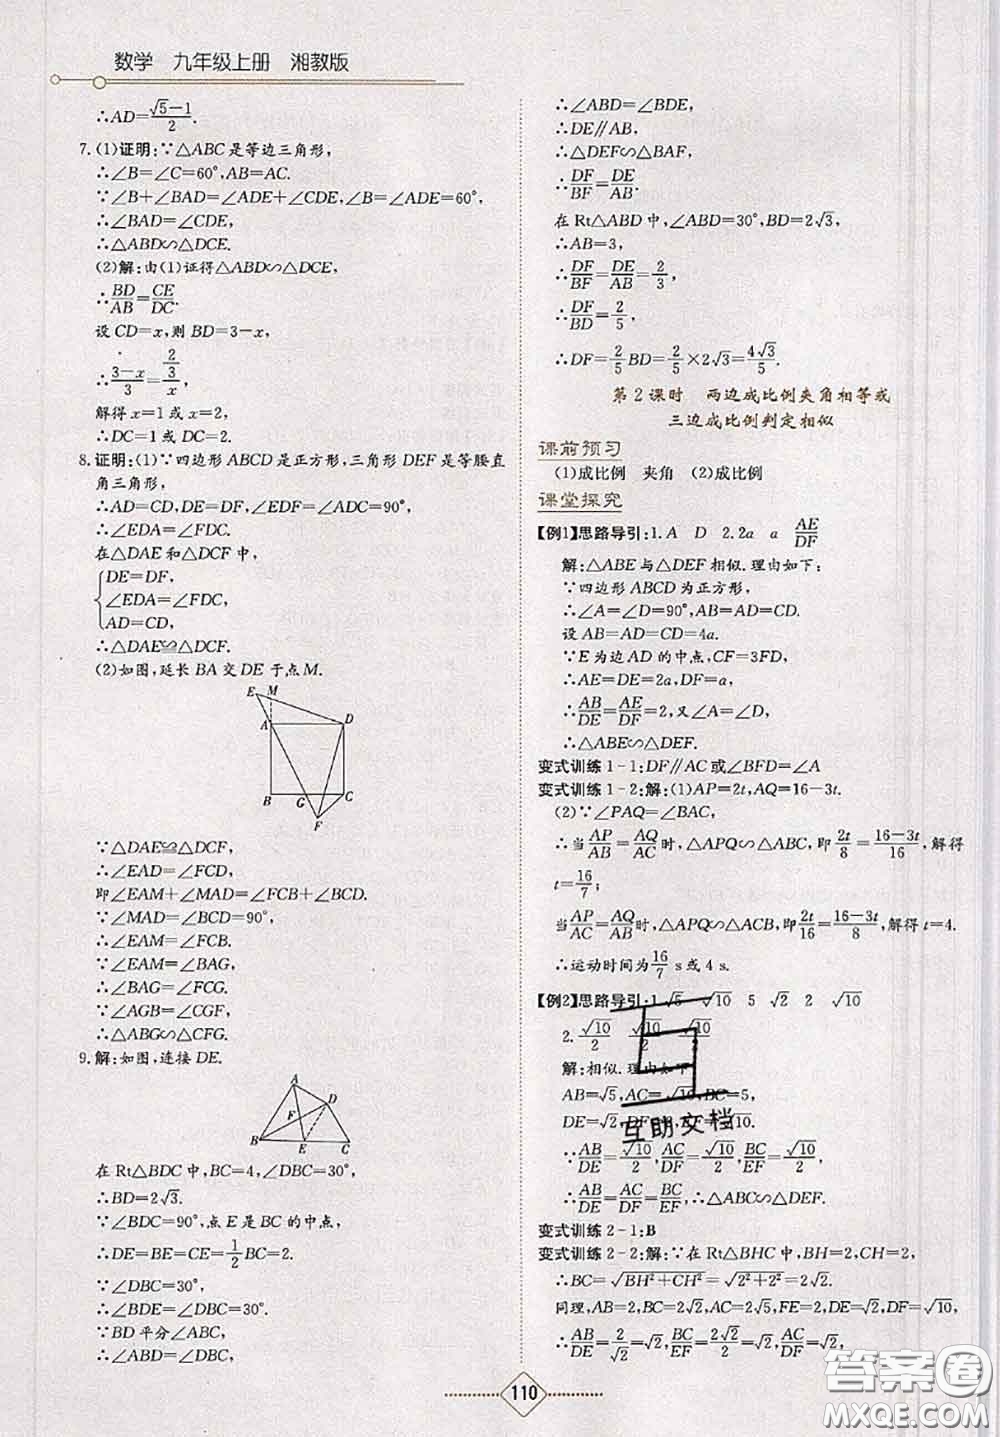 数学 九年级上册 湘教版
∴AD=(√5-1)/2.
7.(1)证明:∵△ABC是等边三角形,
∴∠B=∠C=60°,AB=AC.
∵∠B+∠BAD=∠ADE+∠CDE,∠B=∠ADE=60°,
∴∠BAD=∠CDE,
∴△ABD∽△DCE.
(2)解:由(1)证得△ABD∽△DCE,
∴BD/AB=CE/DC.
设CD=x,则BD=3-x,
∴(3-x)/3=(2/3)/x,
解得x=1或x=2,
∴DC=1或DC=2.
8.证明:(1)∵四边形ABCD是正方形,三角形DEF是等腰直
角三角形,
∴AD=CD,DE=DF,∠EDF=∠ADC=90°,
∴∠EDA=∠FDC.
在△DAE和△DCF中,
DE=DF,
∠EDA=∠FDC,
AD=CD,
∴△DAE≌△DCF.
(2)如图,延长BA交DE于点M.
E M
A D
B G C
F
∵△DAE≌△DCF,
∴∠EAD=∠FCD,
即∠EAM+∠MAD=∠FCB+∠BCD.
∵∠MAD=∠BCD=90°,
∴∠EAM=∠FCB.
∵∠EAM=∠BAG,
∴∠BAG=∠FCG.
∵∠AGB=∠CGF,
∴△ABG∽△CFG.
9.解:如图,连接DE.
A
F D
B E C
在Rt△BDC中,BC=4,∠DBC=30°,
∴BD=2√3.
∵∠BDC=90°,点E是BC的中点,
∴DE=BE=CE=1/2BC=2.
∵∠DBC=30°,
∴∠BDE=∠DBC=30°.
∵BD平分∠ABC,
∴∠ABD=∠DBC,
∴∠ABD=∠BDE,
∴DE∥AB,
∴△DEF∽△BAF,
∴DF/BF=DE/AB.
在Rt△ABD中,∠ABD=30°,BD=2√3,
∴AB=3,
∴DF/BF=DE/AB=2/3,
∴DF/BD=2/5,
∴DF=2/5BD=2/5×2√3=4√3/5.
第2课时 两边成比例夹角相等或
三边成比例判定相似
课前预习
(1)成比例 夹角 (2)成比例
课堂探究
【例1】思路导引:1.A D 2.2a a AE/DF
解:△ABE与△DEF相似.理由如下:
∵四边形ABCD为正方形,
∴∠A=∠D=90°,AB=AD=CD.
设AB=AD=CD=4a.
∵E为边AD的中点,CF=3FD,
∴AE=DE=2a,DF=a,
∴AB/DE=AE/DF=2,又∠A=∠D,
∴△ABE∽△DEF.
变式训练1-1:DF∥AC或∠BFD=∠A
变式训练1-2:解:(1)AP=2t,AQ=16-3t.
(2)∵∠PAQ=∠BAC,
∴当AP/AB=AQ/AC时,△APQ∽△ABC,即2t/8=(16-3t)/16,解得
t=16/7;
当AP/AC=AQ/AB时,△APQ∽△ACB,即2t/16=(16-3t)/8,解得t=4.
∴运动时间为16/7 s或4 s.
【例2】思路导引:1.√5 √10 5 √2 2 √10
2.√10/2 √10/2 √10/2
解:相似.理由如下
AB=√5,AC=√10,BC=5,
DE=√2,DF=2,EF=√10.
∵AB/DE=√10/2,AC/DF=√10/2,BC/EF=√10/2,
∴AB/DE=AC/DF=BC/EF,∴△ABC∽△DEF.
变式训练2-1:B
变式训练2-2:解:∵在Rt△BHC中,BH=2,CH=2,
∴BC=√(BH²+CH²)=√(2²+2²)=2√2.
同理,AB=2,BC=2√2,AC=2√5,FE=2,DE=√2,DF=√10,
∴AB/DE=2/√2=√2,BC/FE=2√2/2=√2,AC/DF=2√5/√10=√2,
互助文档
110
答案圈
MXQE.COM